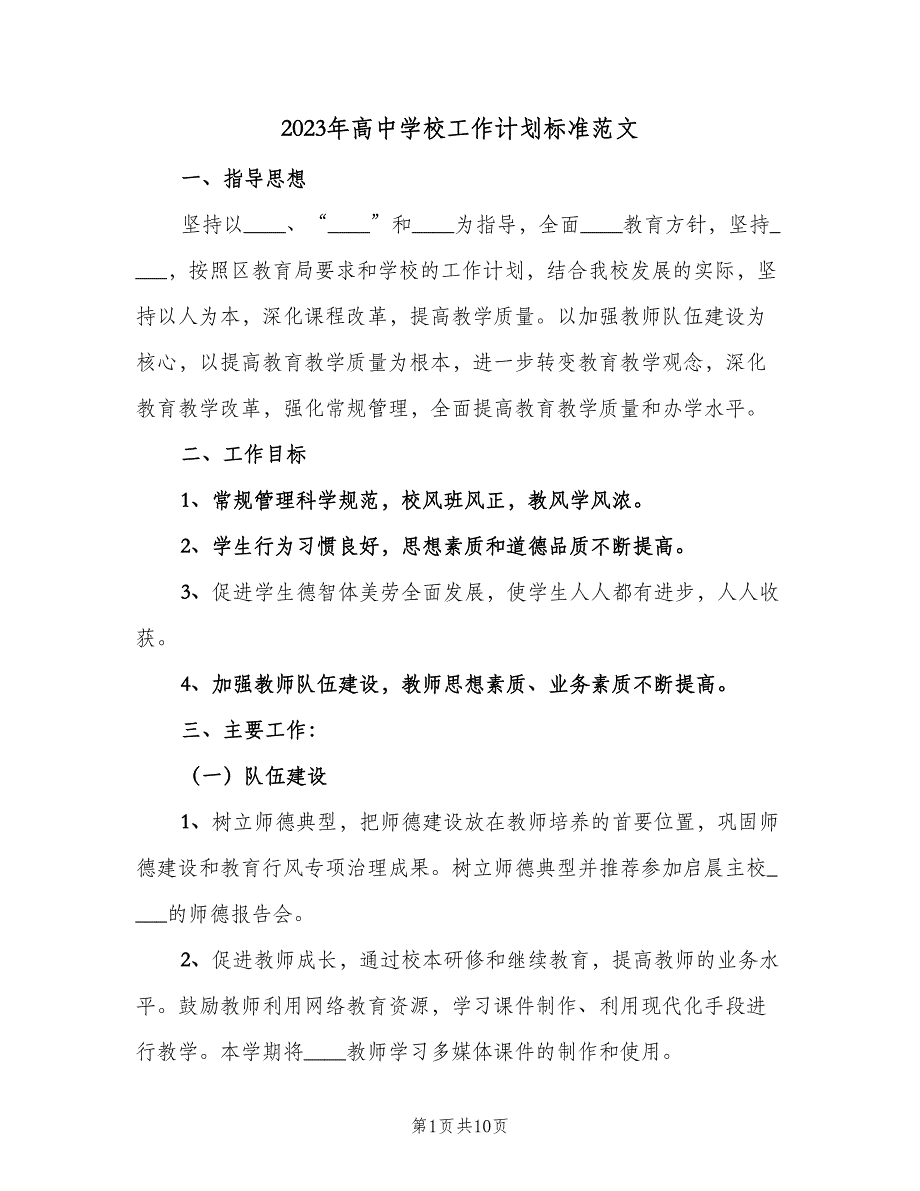 2023年高中学校工作计划标准范文
一、指导思想
坚持以____、“____”和____为指导，全面____教育方针，坚持_
___，按照区教育局要求和学校的工作计划，结合我校发展的实际，坚
持以人为本，深化课程改革，提高教学质量。以加强教师队伍建设为
核心，以提高教育教学质量为根本，进一步转变教育教学观念，深化
教育教学改革，强化常规管理，全面提高教育教学质量和办学水平。
二、工作目标
1、常规管理科学规范，校风班风正，教风学风浓。
2、学生行为习惯良好，思想素质和道德品质不断提高。
3、促进学生德智体美劳全面发展，使学生人人都有进步，人人收
获。
4、加强教师队伍建设，教师思想素质、业务素质不断提高。
三、主要工作：
（一）队伍建设
1、树立师德典型，把师德建设放在教师培养的首要位置，巩固师
德建设和教育行风专项治理成果。树立师德典型并推荐参加启晨主校_
___的师德报告会。
2、促进教师成长，通过校本研修和继续教育，提高教师的业务水
平。鼓励教师利用网络教育资源，学习课件制作、利用现代化手段进
行教学。本学期将____教师学习多媒体课件的制作和使用。
第1页共10页